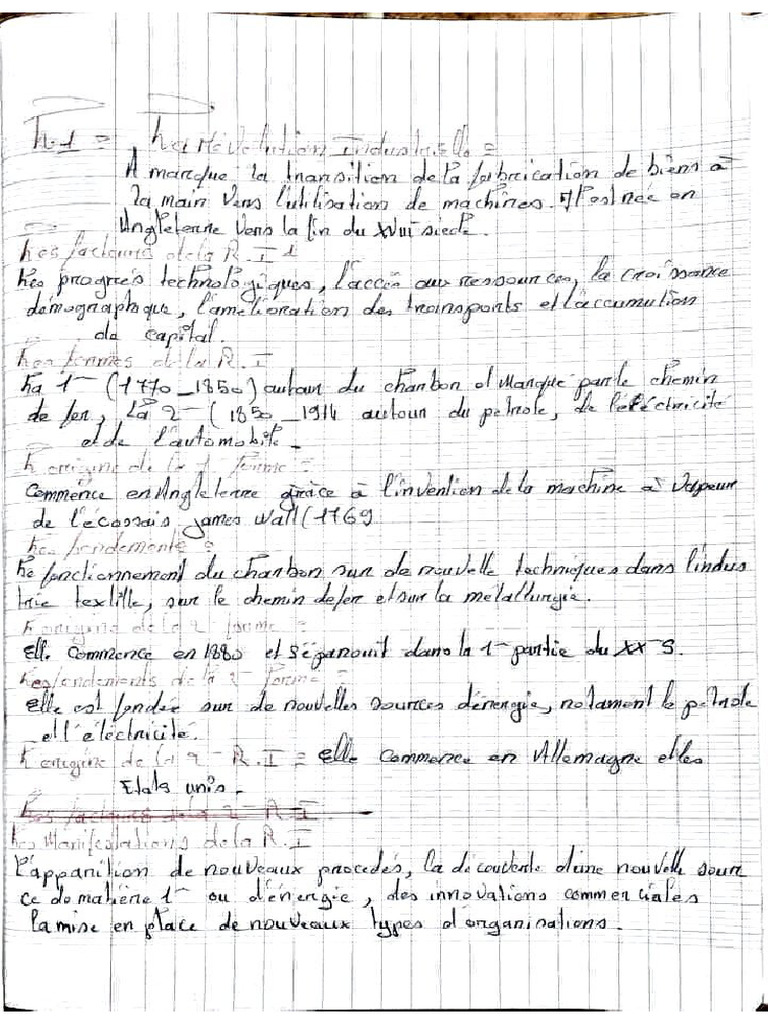 h.1 = La Révolution Industrielle =
A marque la transition de la fabrication de biens à
la main vers l'utilisation de machines. Il est née en
Angleterre vers la fin du XVIII siècle.
Les facteurs de la R.I
Les progrès technologiques, l'accès aux ressources, la croissance
démographique, l'amélioration des transports et l'accumution
de capital.
Les formes de la R.I
La 1 (1770_1850) autour du charbon et Marque par le chemin
de fer, La 2 (1850_1914 autour du pétrole, de l'électricité
et de l'automobile_
L'origine de la 1 forme =
Commence en Angleterre grâce à l'invention de la machine à vapeur
de l'écossais james Watt (1769
Les fondements =
Le fonctionnement du charbon sur de nouvelle techniques dans l'indus
trie textille, sur le chemin de fer et sur la métallurgie.
L'origine de la 2 forme =
Elle Commence en 1880 et s'épanouit dans la 1 partie du XX S.
Les fondements de la 2 forme =
elle est fondée sur de nouvelles sources d'énergie, notament le pétrole
et l'éléctricité.
L'origine de la 2 R.I = elle Commence en Allemagne et les
Etats unis.
Les facteurs de la 2 R.I
Les Manifestations de la R.I
L'apparition de nouveaux procedés, la découverte d'une nouvelle sour
ce de matière 1 ou d'énergie, des innovations commerciales
la mise en place de nouveaux types d'organisations.